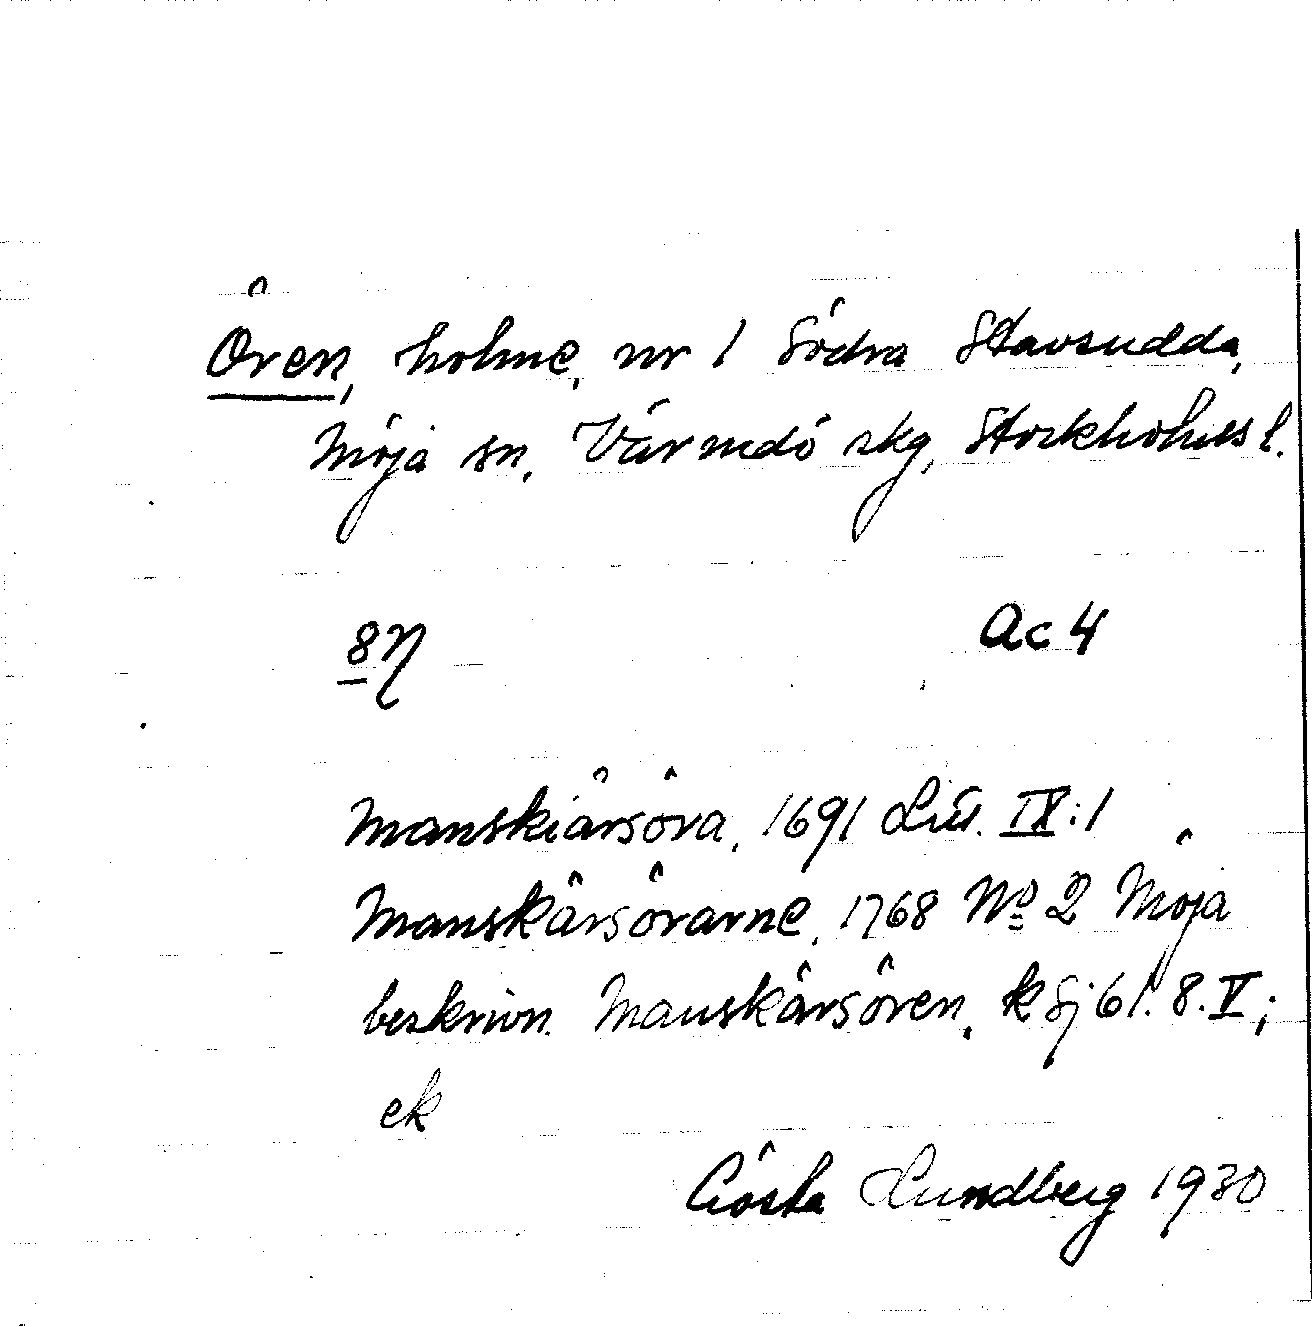 Ören, holme, nr 1 Södra Stavsudda,
Möja sn, Värmdö skg, Stockholms l.
8η
Ac 4
Manskiärsöra, 1691 Litt. IX:1
Manskärsörarne, 1768 No 2 Möja
beskrivn. Manskärsören, k Sj 61. 8. V;
ek
Gösta Lundberg 1930